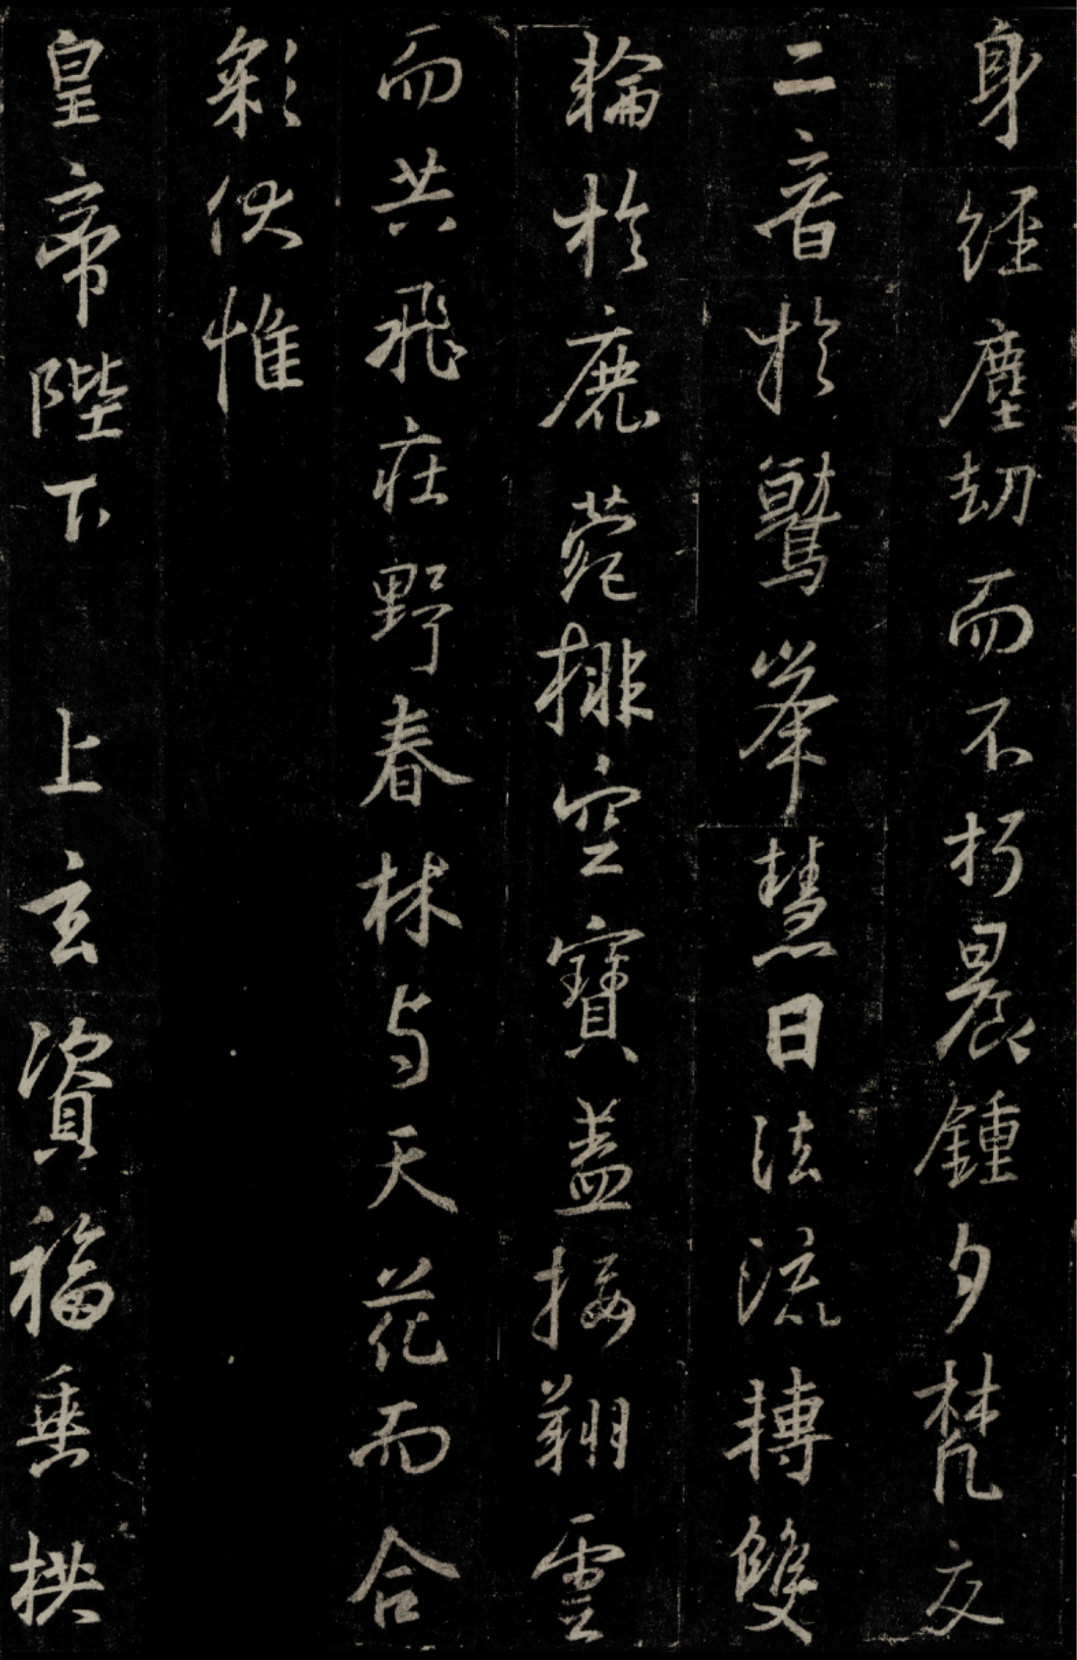 身經塵劫而不朽晨鍾夕梵交
二音於鷲峯慧日法流轉雙
輪於鹿菀排空寶蓋接翔雲
而共飛庄野春林与天花而合
彩伏惟
皇帝陛下 上玄資福垂拱